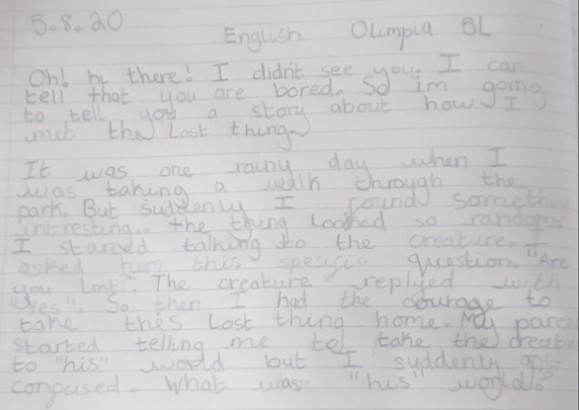 5.8.20
English Olimpia 5L
Oh! hi there! I didn't see you. I can
tell that you are bored. So im going
to tell you a story about how I
met the Lost thing.
It was one rainy day when I
was taking a walk through the
park. But suddenly I found
intresting. the thing looked so random.
I started talking to the creature. I
asked this spesific question. "Are
you Lost?" The creature replyed with
"Yes". So then I had the courage to
take this Lost thing home. My
started telling me to take the
to "his" world but I suddenly got
confused. What was "his" world?